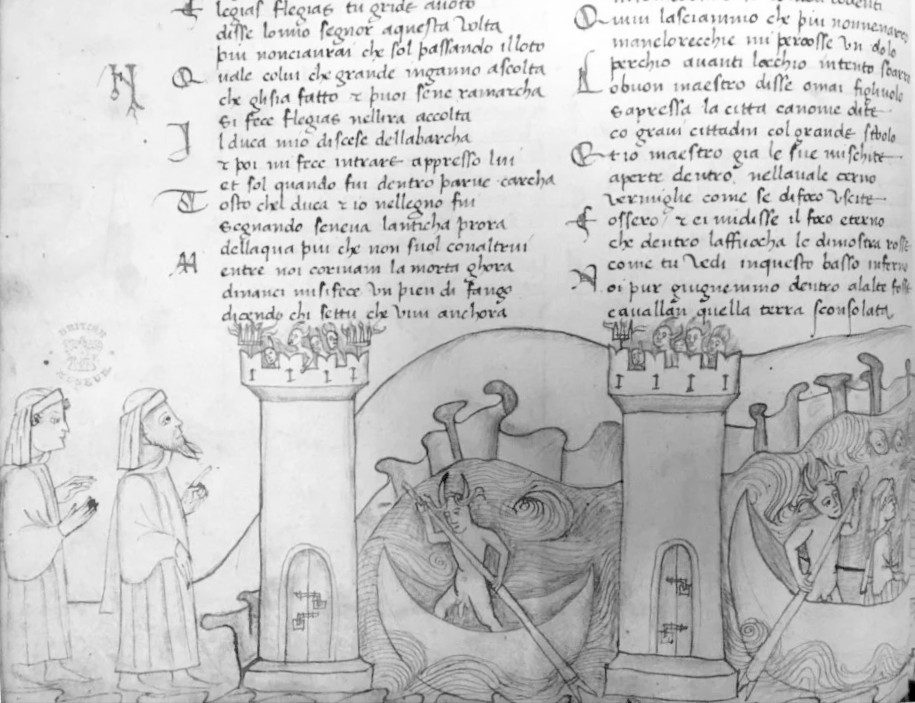 legias flegias tu gride avoto
disse lomio segnor aquesta volta
piu nonciaurai che sol passando illoto
Quale colui che grande inganno ascolta
che glisia fatto 7 puoi sene ramarcha
si fece flegias nellira accolta
Il duca mio discese dellabarcha
7 poi mi fece intrare appresso lui
et sol quando fui dentro parve carcha
Tosto chel duca 7 io nellegno fui
segnando seneva lanticha prora
dellaqua piu che non suol conaltrui
Mentre noi coriuam la morta ghora
dinanci misifece un pien di fango
dicendo chi settu che vivi anchora
Quiui lasciammo che piu nonnenarro
manelorecchie mi percosse un dolo
perchio avanti locchio intento
Lo buon maestro disse omai figluolo
sapressa la citta canome dite
co gravi cittadin col grande stuolo
Et io maestro gia le sue mischite
aperte dentro nellavale cerno
vermiglie come se difoco uscite
fossero 7 ei midisse il foco eterno
che dentro laffuocha le dimostra rosse
come tu vedi inquesto basso inferno
Noi pur giugnemmo dentro alalte fosse
cavallan quella terra sconsolata